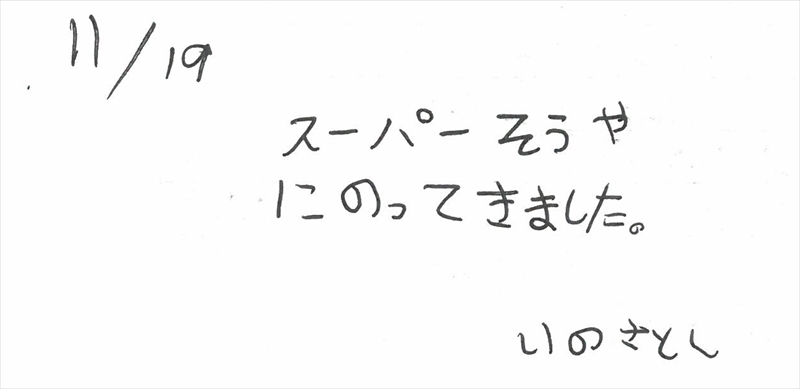 11/19
スーパーそうや
にのってきました。
いのさとし